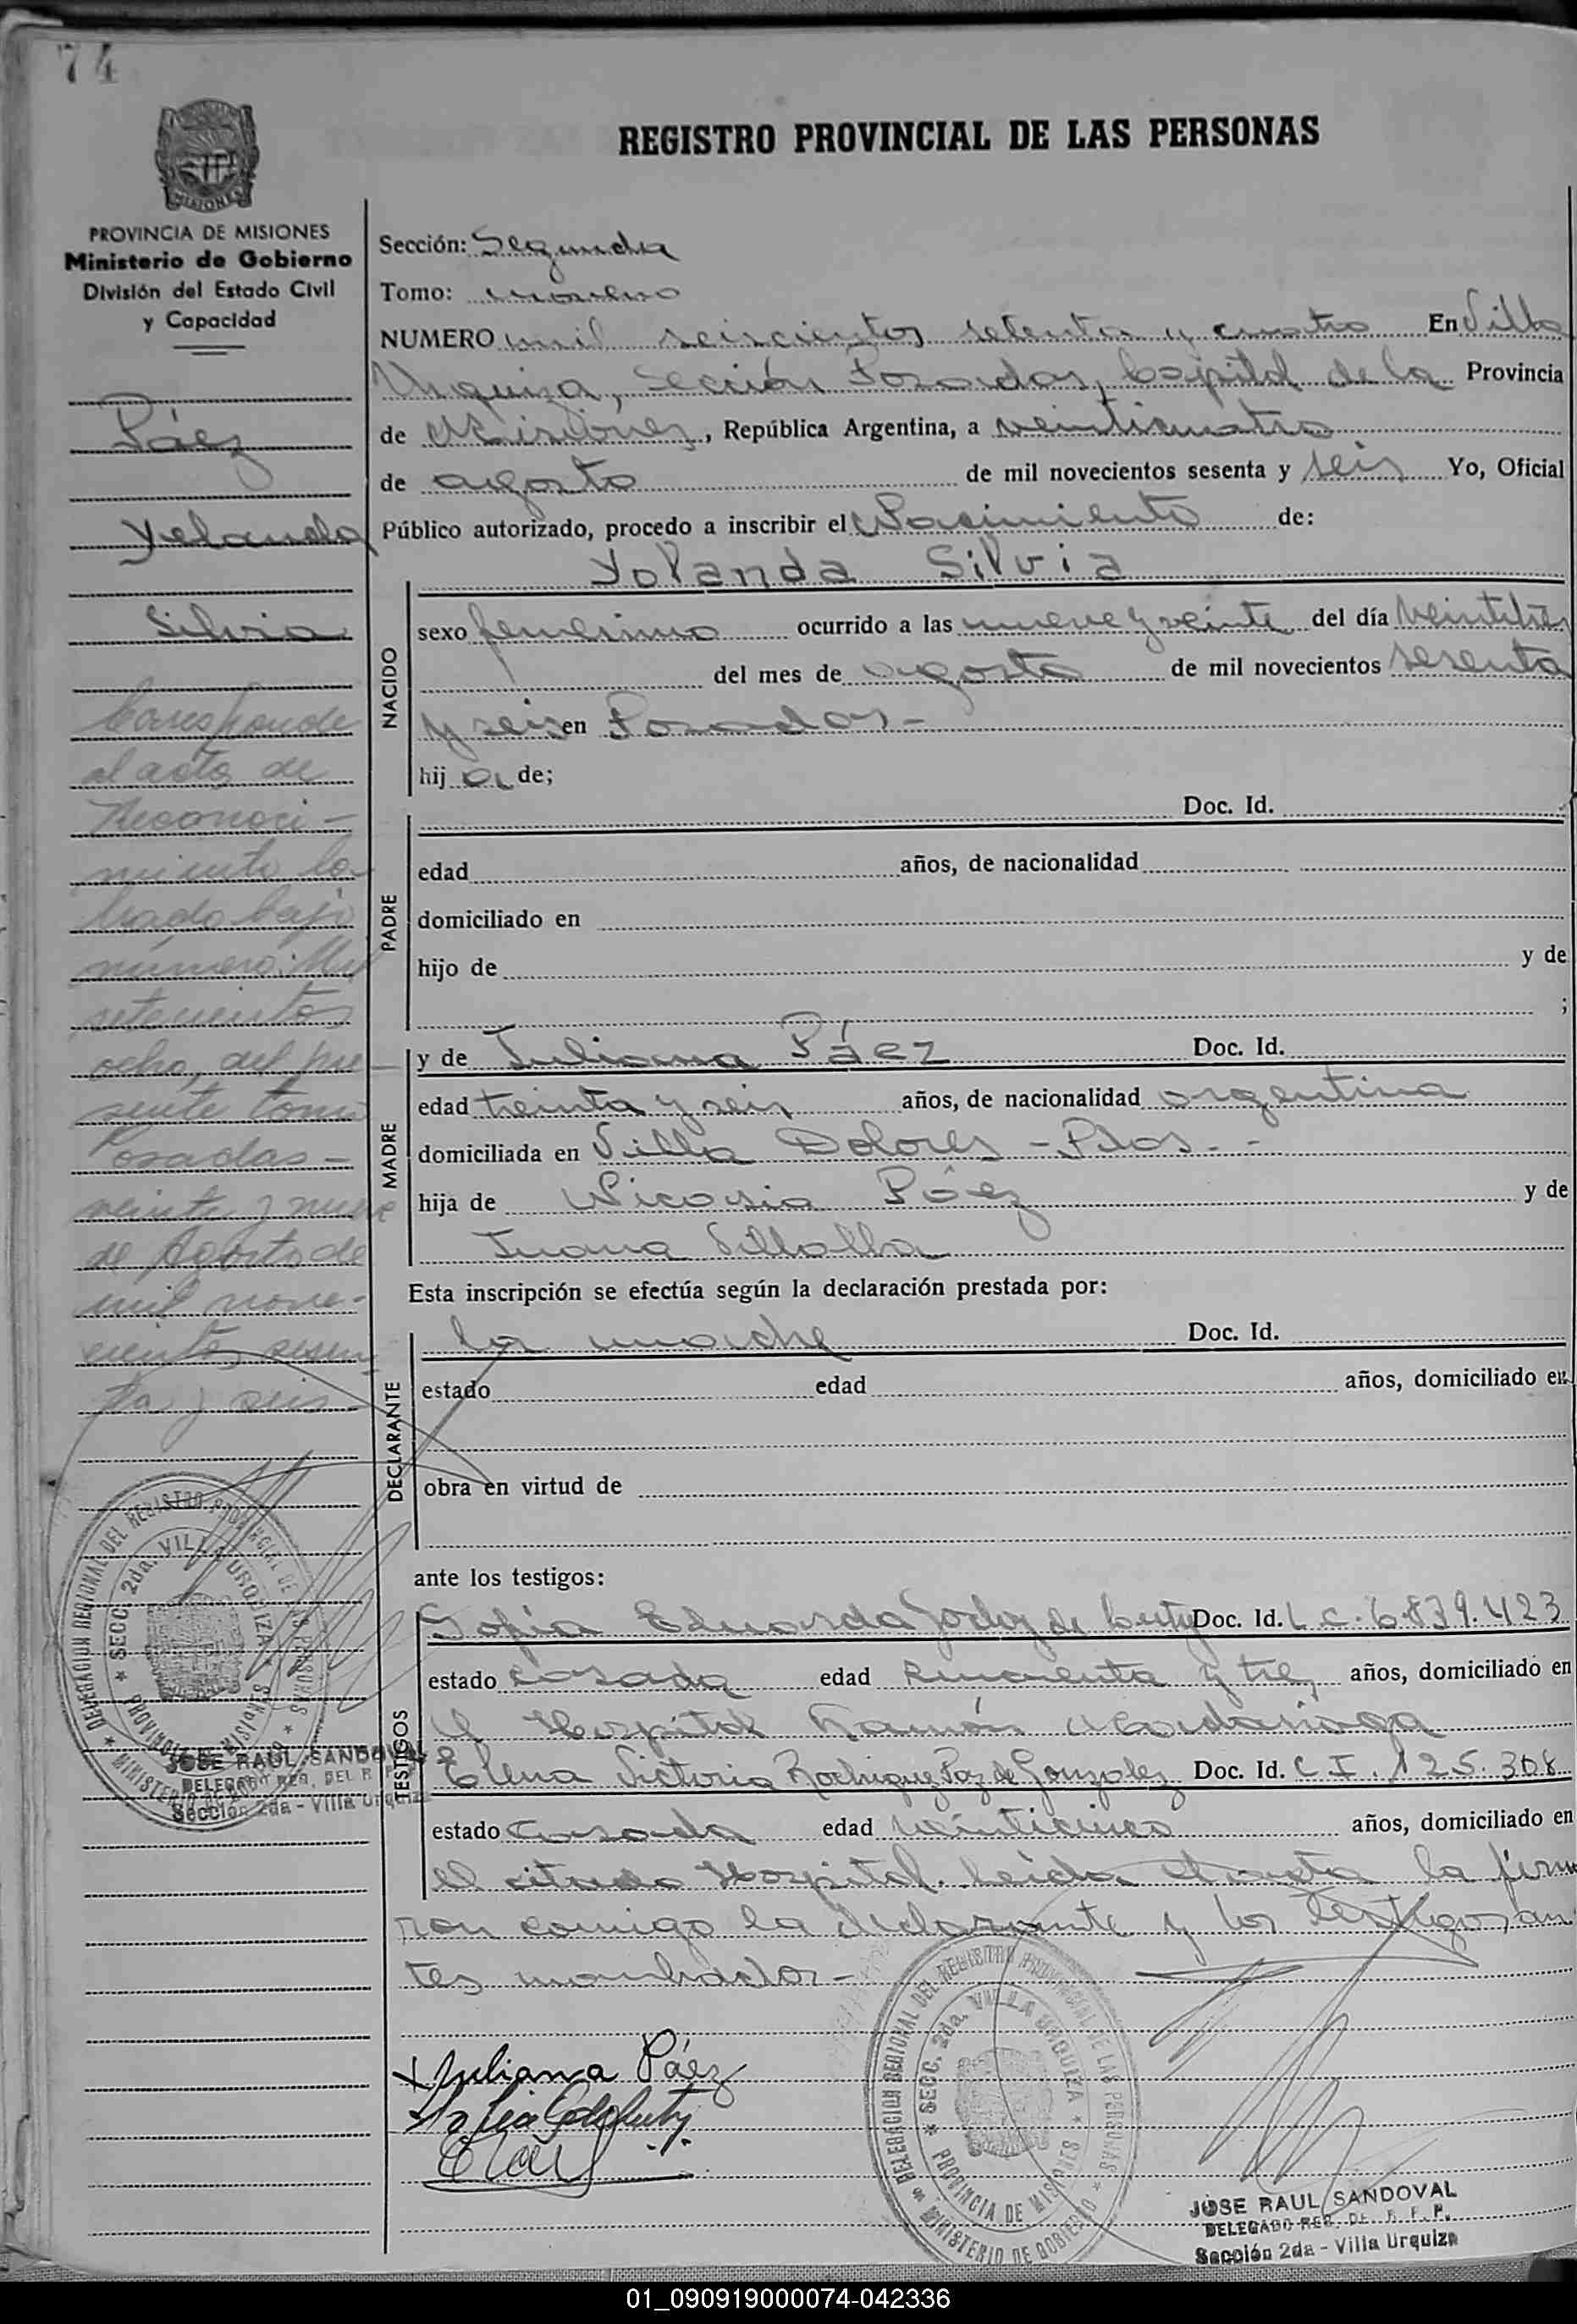 74
REGISTRO PROVINCIAL DE LAS PERSONAS
PROVINCIA DE MISIONES
Ministerio de Gobierno
División del Estado Civil
y Capacidad
Páez
Yolanda
Silvia
Corresponde
al acta de
Reconoci-
miento la-
brado bajo
número: Mil
setecientos
ocho, del pre-
sente tomo
Posadas-
veinte y nueve
de Agosto de
mil nove-
cientos sesen-
ta y seis
DELEGACION REGIONAL DEL REGISTRO PROVINCIAL DE LAS PERSONAS
* SECC. 2da. VILLA URQUIZA *
PROVINCIA DE MISIONES
* MINISTERIO DE GOBIERNO
JOSE RAUL SANDOVAL
DELEGADO REG. DEL R. P. P.
Sección 2da - Villa Urquiza
Sección: Segunda
Tomo: noveno
NUMERO mil seiscientos setenta y cuatro En Villa
Urquiza, Sección Posadas, Capital de la Provincia
de Misiones, República Argentina, a veinticuatro
de agosto de mil novecientos sesenta y seis Yo, Oficial
Público autorizado, procedo a inscribir el Nacimiento de:
Yolanda Silvia
NACIDO
sexo femenino ocurrido a las nueve y veinte del día veintitrés
del mes de agosto de mil novecientos sesenta
y seis en Posadas-
hij a de;
PADRE
Doc. Id.
edad años, de nacionalidad
domiciliado en
hijo de y de
;
MADRE
y de Juliana Páez Doc. Id.
edad treinta y seis años, de nacionalidad argentina
domiciliada en Villa Dolores - Pdas. -
hija de Nicosia Páez y de
Juana Villalba
Esta inscripción se efectúa según la declaración prestada por:
DECLARANTE
la madre Doc. Id.
estado edad años, domiciliado en
obra en virtud de
ante los testigos:
TESTIGOS
Sofía Eduarda Godoy de Doc. Id. L.C. 6.839.423
estado casada edad cincuenta y tres años, domiciliado en
el Hospital Ramón Madariaga
Elena Victoria Rodriguez Paz de Gonzalez Doc. Id. C.I. 125.308
estado casada edad veinticinco años, domiciliado en
el citado Hospital. Leída el acta la firma
ron conmigo la declarante y los testigos an
tes nombrados-
Juliana Páez
DELEGACION REGIONAL DEL REGISTRO PROVINCIAL DE LAS PERSONAS
* SECC. 2da. VILLA URQUIZA *
PROVINCIA DE MISIONES
* MINISTERIO DE GOBIERNO
JOSE RAUL SANDOVAL
DELEGADO REG. DEL R. P. P.
Sección 2da - Villa Urquiza
01_090919000074-042336